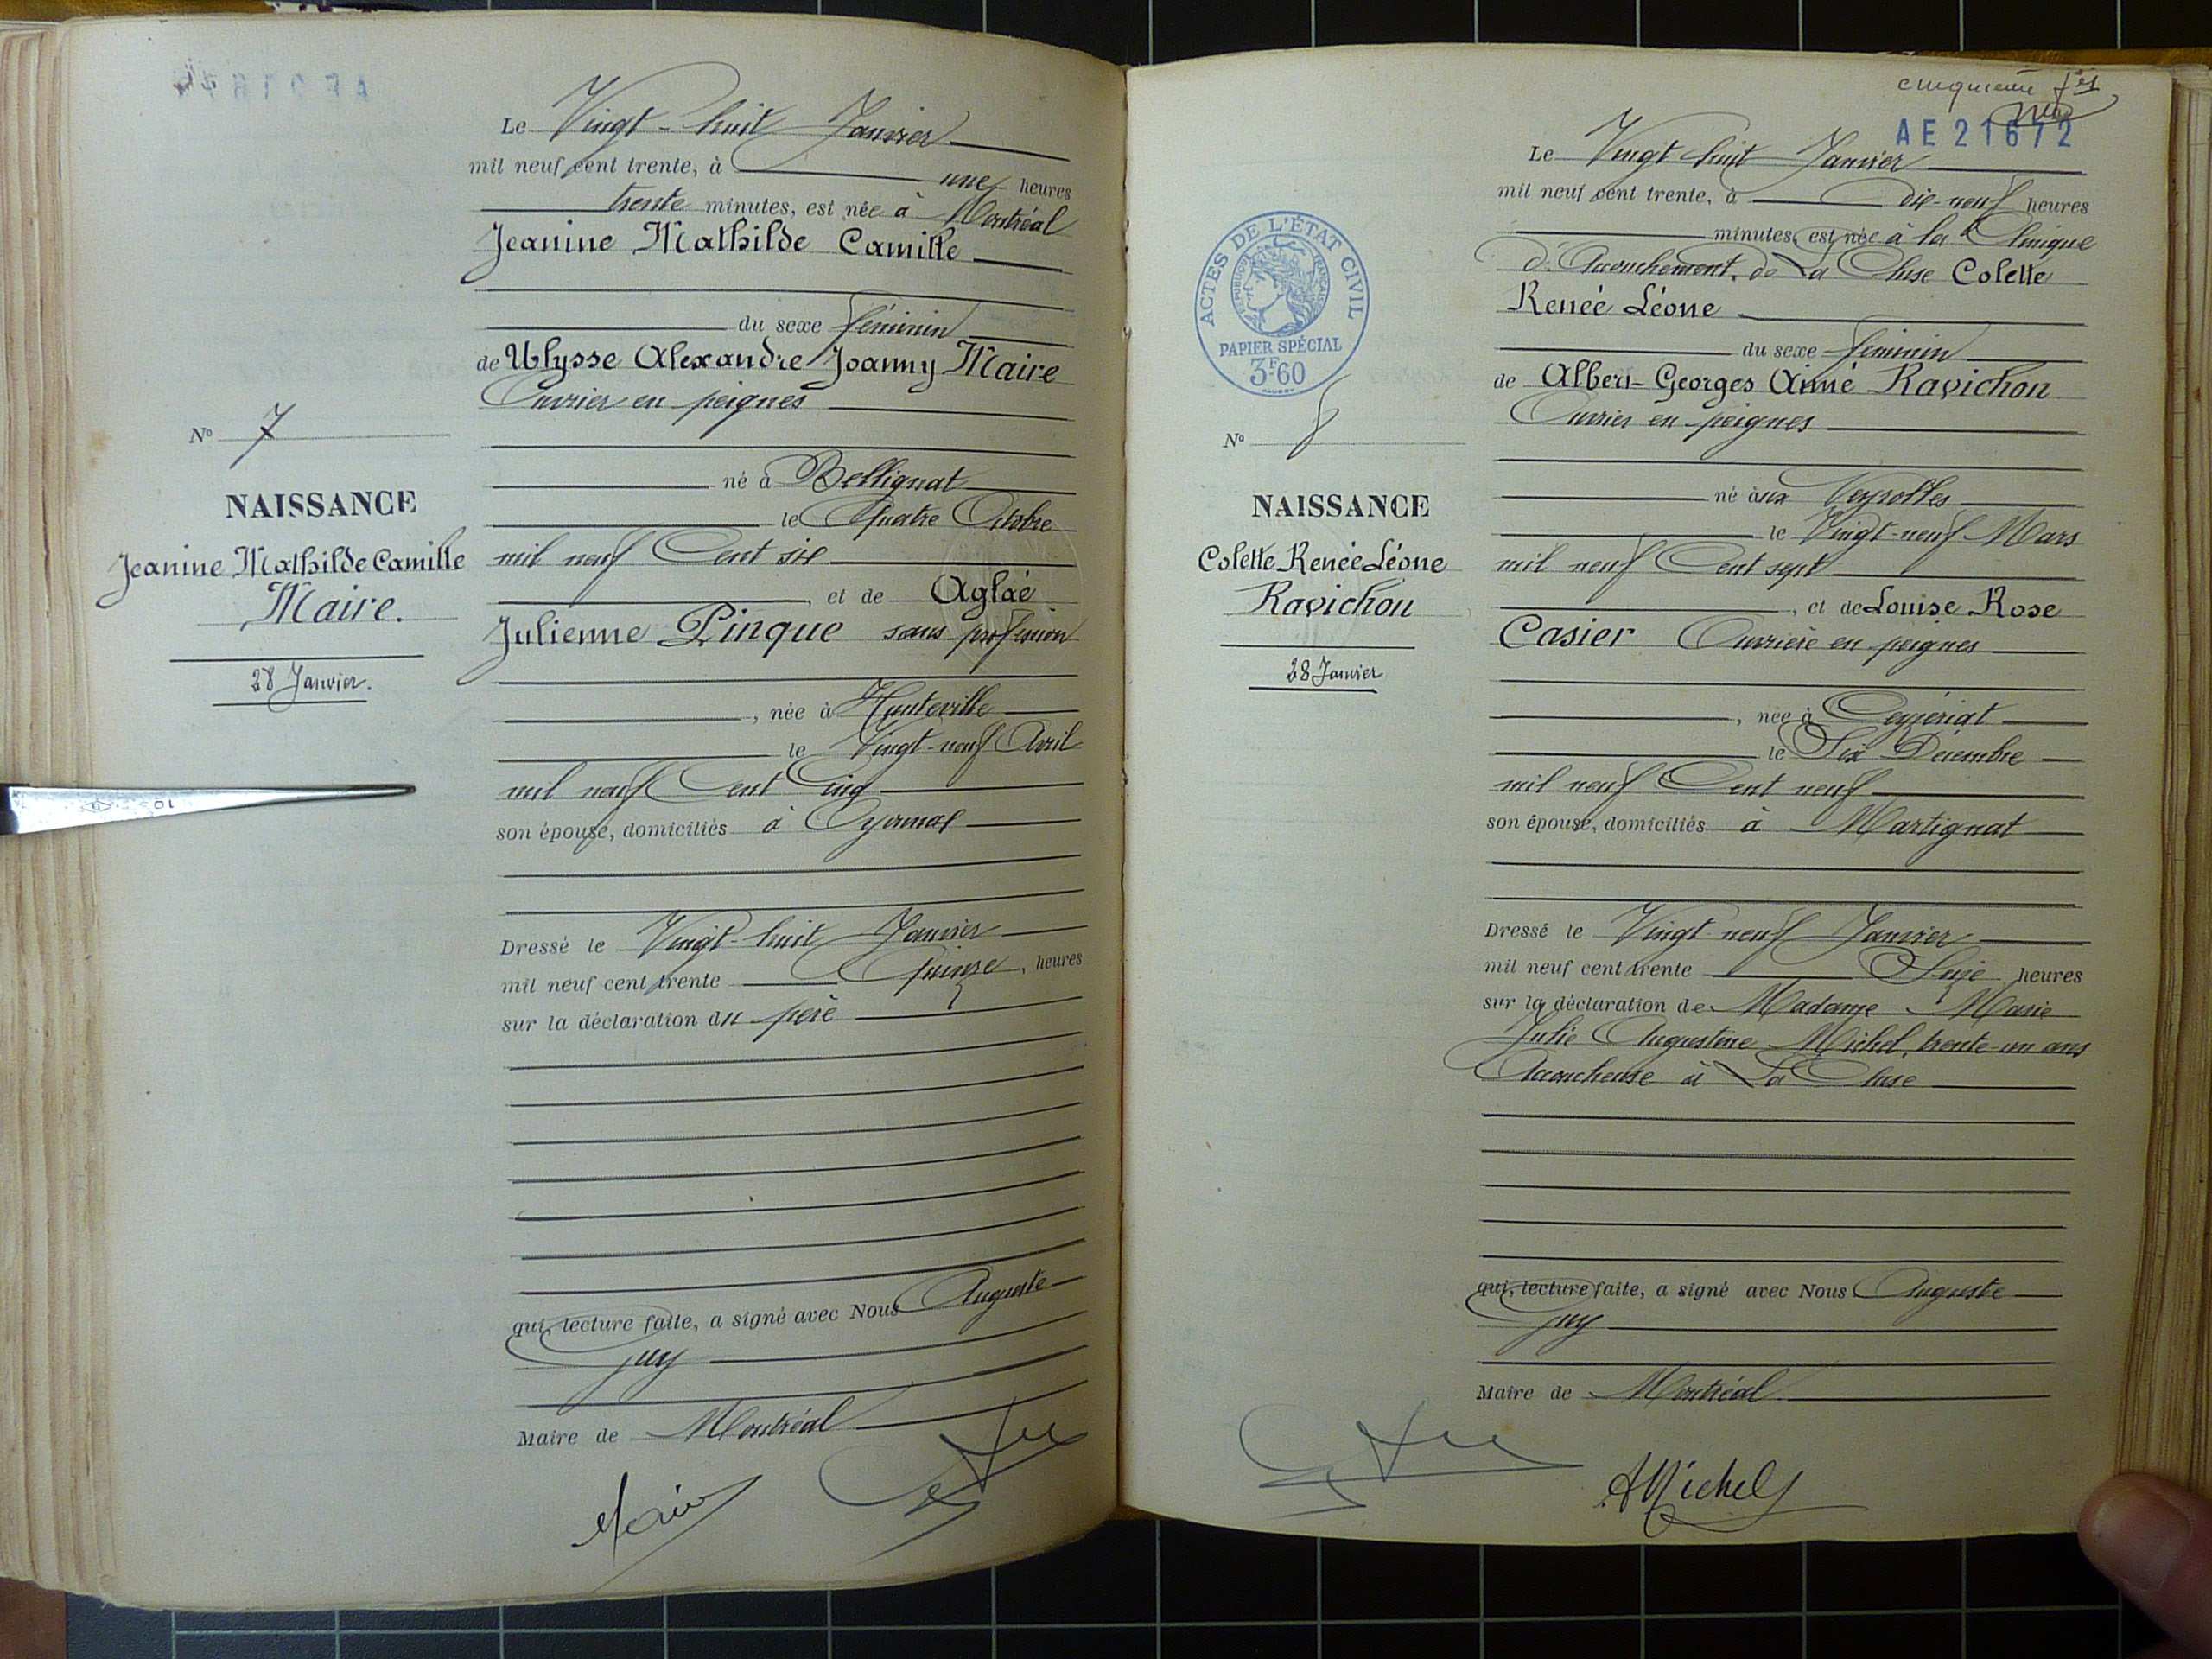 Le Vingt-huit Janvier
mil neuf cent trente, à une heures
trente minutes, est née à Montréal
Jeanine Mathilde Camille
du sexe féminin
de Ulysse Alexandre Joanny Maire
Ouvrier en peignes
né à Bellignat
le Quatre Octobre
mil neuf Cent six
, et de Aglaé
Julienne Pinque sans profession
, née à Hauteville
le Vingt-neuf Avril
mil neuf Cent Cinq
son épouse, domiciliés à Oyonnax
Dressé le Vingt-huit Janvier
mil neuf cent trente Quinze, heures
sur la déclaration du père
qui, lecture faite, a signé avec Nous Auguste
Guy
Maire de Montréal
Maire
N° 7
NAISSANCE
Jeanine Mathilde Camille
Maire.
28 Janvier.
cinquième
AE 21672
Le Vingt huit Janvier
mil neuf cent trente, à dix-neuf heures
minutes, est née à la Clinique
d'Accouchement, de La Cluse Colette
Renée Léone
du sexe féminin
de Albert Georges Aimé Ravichon
Ouvrier en peignes
né aux Neyrolles
le Vingt-neuf Mars
mil neuf Cent sept
, et de Louise Rose
Casier Ouvrière en peignes
, née à Ceyzériat
le Six Décembre
mil neuf Cent neuf
son épouse, domiciliés à Martignat
Dressé le Vingt neuf Janvier
mil neuf cent trente Seize heures
sur la déclaration de Madame Marie
Julie Augustine Michel, trente-un ans
Accoucheuse à La Cluse
qui, lecture faite, a signé avec Nous Auguste
Guy
Maire de Montréal
AMichel
ACTES DE L'ÉTAT CIVIL
RÉPUBLIQUE FRANÇAISE
PAPIER SPÉCIAL
3F60
N° 8
NAISSANCE
Colette Renée Léone
Ravichon
28 Janvier